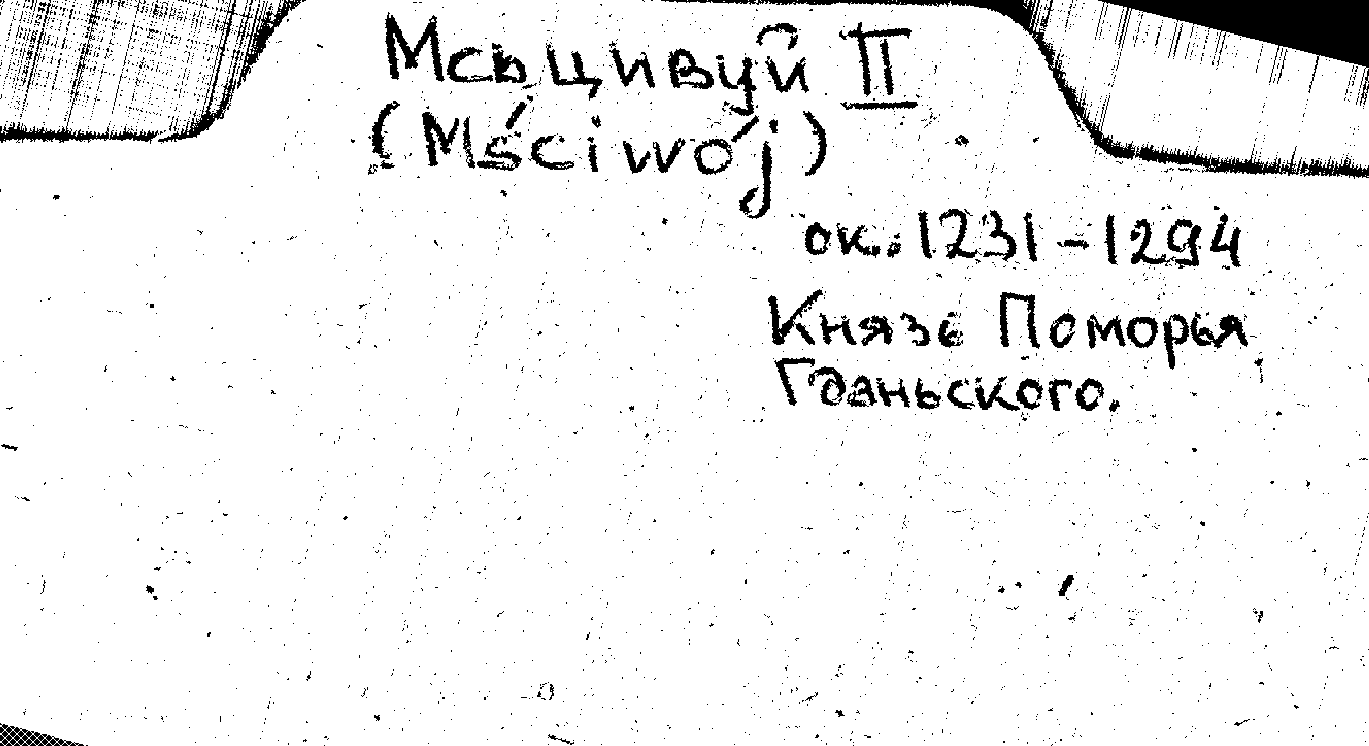 Мсьцивуй II
(Mściwój)
ок. 1231 - 1294
Князь Поморья
Гданьского.